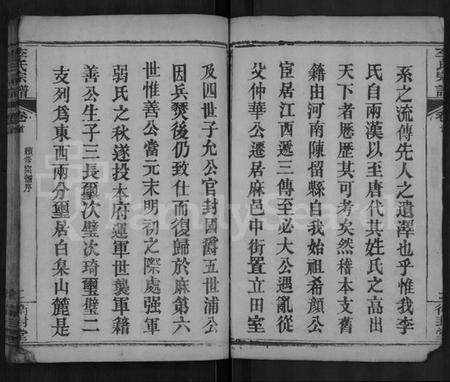 系之流傳先人之遺澤也乎惟我李
氏自兩漢以至唐代其姓氏之高出
天下者歷歷其可考矣然稽本支舊
籍由河南陳留縣自我始祖希顔公
宦居江西遞三傳至必大公遇亂從
父仲華公遷居麻邑中街置立田室
及四世子允公官封國爵五世浦公
因兵燹後仍致仕而復歸於麻第六
世惟善公當元末明初之際處强軍
弱民之秋遂投本府運軍世襲軍籍
善公生子三長璽次璧次琦璽璧二
支列爲東西兩分璽居白臬山麓是
李氏宗譜
卷首
續修宗譜序
FamilySearch